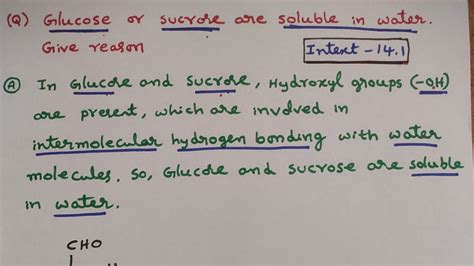 (Q) Glucose or sucrose are soluble in water.
Give reason
Intext - 14.1
(A) In Glucose and Sucrose, Hydroxyl groups (-OH)
are present, which are involved in
intermolecular hydrogen bonding with water
molecules. So, Glucose and sucrose are soluble
in water.
CHO